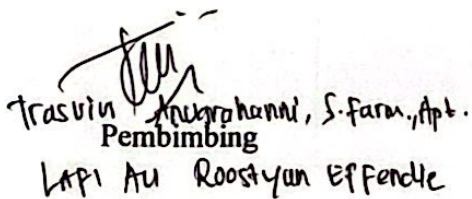 Trasvin Anugrahanni, S.Farm., Apt.
Pembimbing
LAFI AU Roostyan Effendie